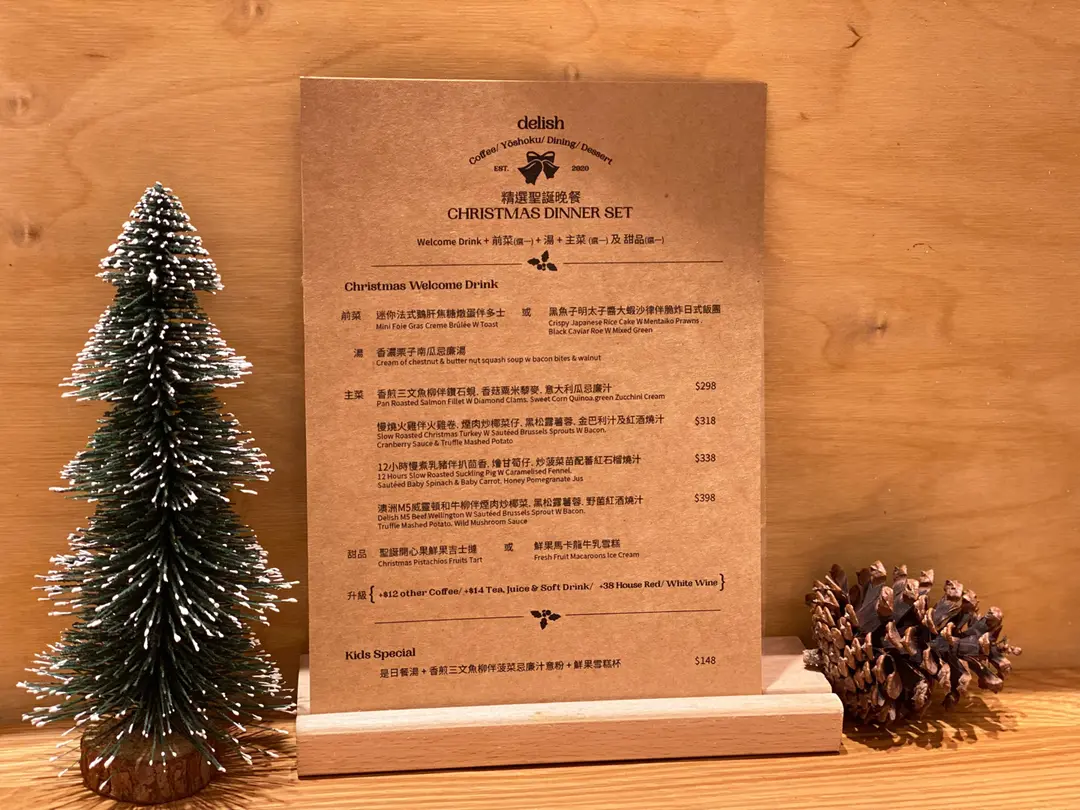 delish
Coffee/ Yōshoku/ Dining/ Dessert
EST. 2020
精選聖誕晚餐
CHRISTMAS DINNER SET
Welcome Drink + 前菜(選一) + 湯 + 主菜 (選一) 及 甜品(選一)
Christmas Welcome Drink
前菜 迷你法式鵝肝焦糖燉蛋伴多士 或 黑魚子明太子醬大蝦沙律伴脆炸日式飯團
Mini Foie Gras Creme Brûlée W Toast
Crispy Japanese Rice Cake W Mentaiko Prawns ,
Black Caviar Roe W Mixed Green
湯 香濃栗子南瓜忌廉湯
Cream of chestnut & butter nut squash soup w bacon bites & walnut
主菜 香煎三文魚柳伴鑽石蜆, 香菇粟米藜麥, 意大利瓜忌廉汁 $298
Pan Roasted Salmon Fillet W Diamond Clams, Sweet Corn Quinoa,green Zucchini Cream
慢燒火雞伴火雞卷, 煙肉炒椰菜仔, 黑松露薯蓉, 金巴利汁及紅酒燒汁 $318
Slow Roasted Christmas Turkey W Sautéed Brussels Sprouts W Bacon,
Cranberry Sauce & Truffle Mashed Potato
12小時慢煮乳豬伴扒茴香, 燴甘筍仔, 炒菠菜苗配蕃紅石榴燒汁 $338
12 Hours Slow Roasted Suckling Pig W Caramelised Fennel,
Sautéed Baby Spinach & Baby Carrot, Honey Pomegranate Jus
澳洲M5威靈頓和牛柳伴煙肉炒椰菜, 黑松露薯蓉, 野菌紅酒燒汁 $398
Delish M5 Beef Wellington W Sautéed Brussels Sprout W Bacon,
Truffle Mashed Potato, Wild Mushroom Sauce
甜品 聖誕開心果鮮果吉士撻 或 鮮果馬卡龍牛乳雪糕
Christmas Pistachios Fruits Tart Fresh Fruit Macaroons Ice Cream
升級 { +$12 other Coffee/ +$14 Tea, Juice & Soft Drink/ +38 House Red/ White Wine }
Kids Special
是日餐湯 + 香煎三文魚柳伴菠菜忌廉汁意粉 + 鮮果雪糕杯 $148